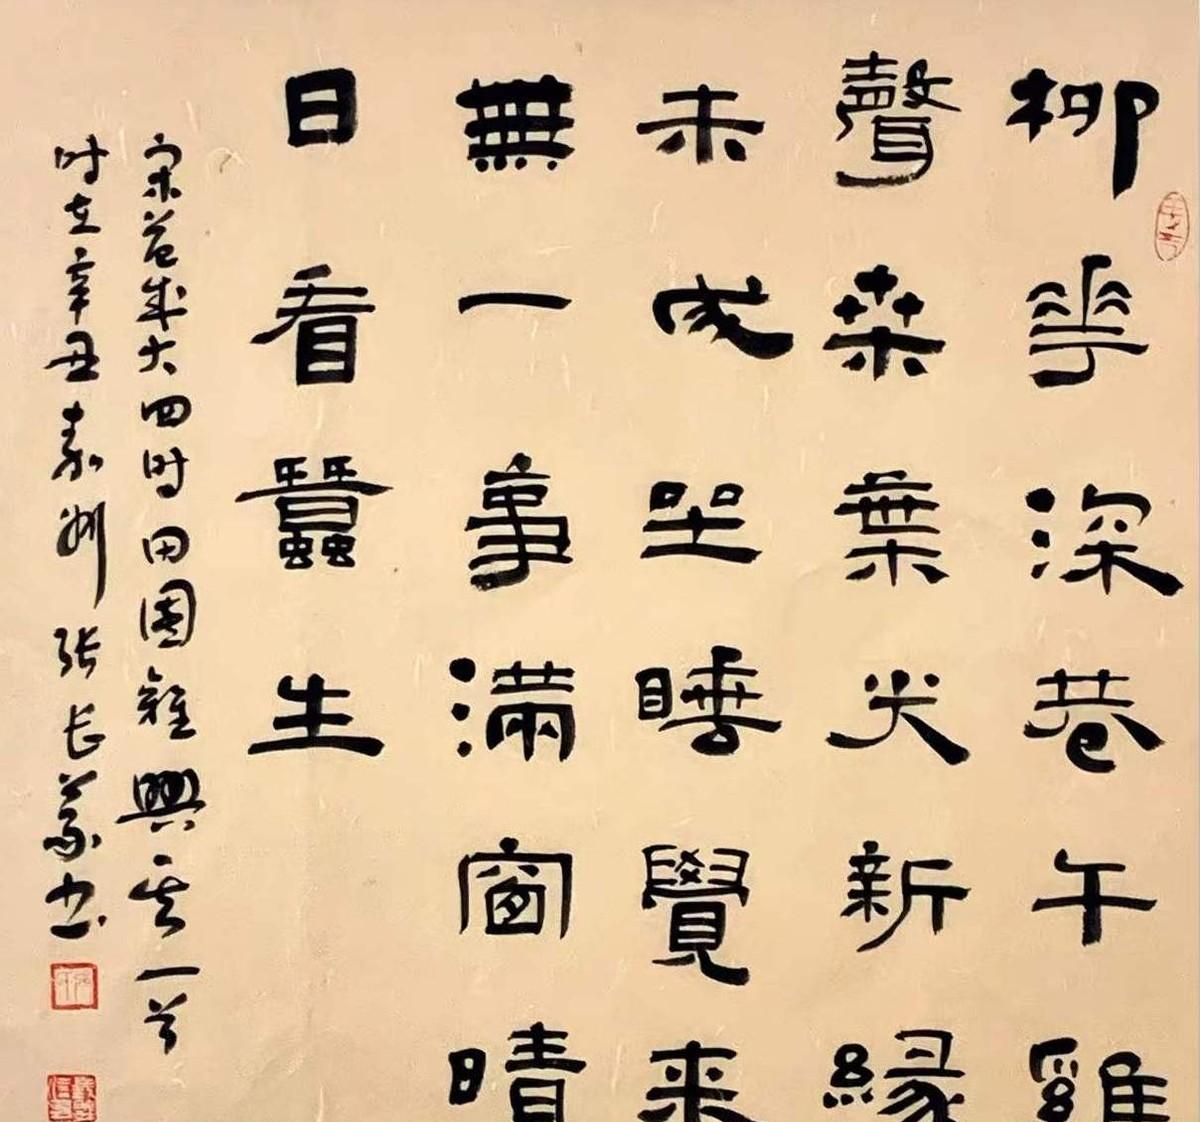 柳花深巷午雞
聲桑葉尖新緣
未成坐睡覺来
無一事滿窗晴
日看蠶生
宋范成大四时田園雜興其一首
时在辛丑嘉州张长義书